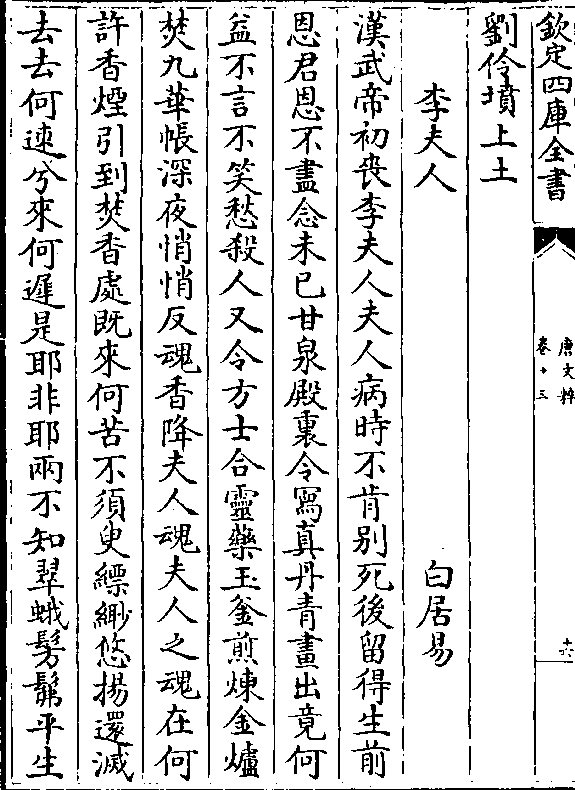 欽定四庫全書
唐文粹
卷十三
六
劉伶墳上土
李夫人 白居易
漢武帝初喪李夫人夫人病時不肯别死後留得生前
恩君恩不盡念未已甘泉殿裏令寫真丹青畫出竟何
益不言不笑愁殺人又令方士合靈藥玉釜煎煉金爐
焚九華帳深夜悄悄反魂香降夫人魂夫人之魂在何
許香煙引到焚香處既來何苦不須臾縹緲悠揚還滅
去去何速兮來何遲是耶非耶兩不知翠蛾髣髴平生